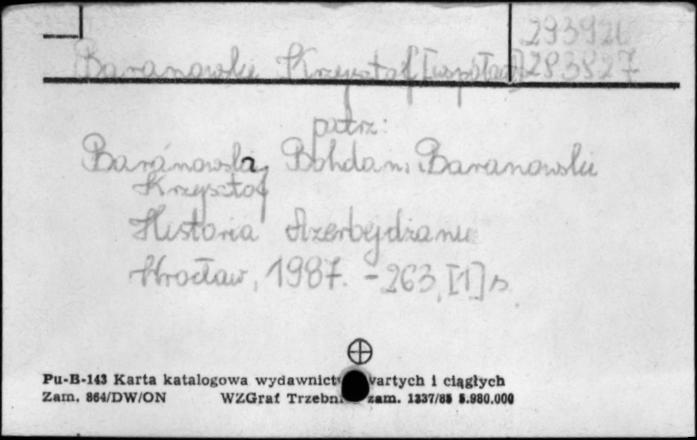 293926
Baranowski Krzysztof [współaut.] 293927
patrz:
Baranowski Bohdan, Baranowski
Krzysztof
Historia Azerbejdżanu
Wrocław, 1987. - 263, [1] s.
Pu-B-143 Karta katalogowa wydawnictw zwartych i ciągłych
Zam. 864/DW/ON WZGraf Trzebni zam. 1337/85 5.980.000